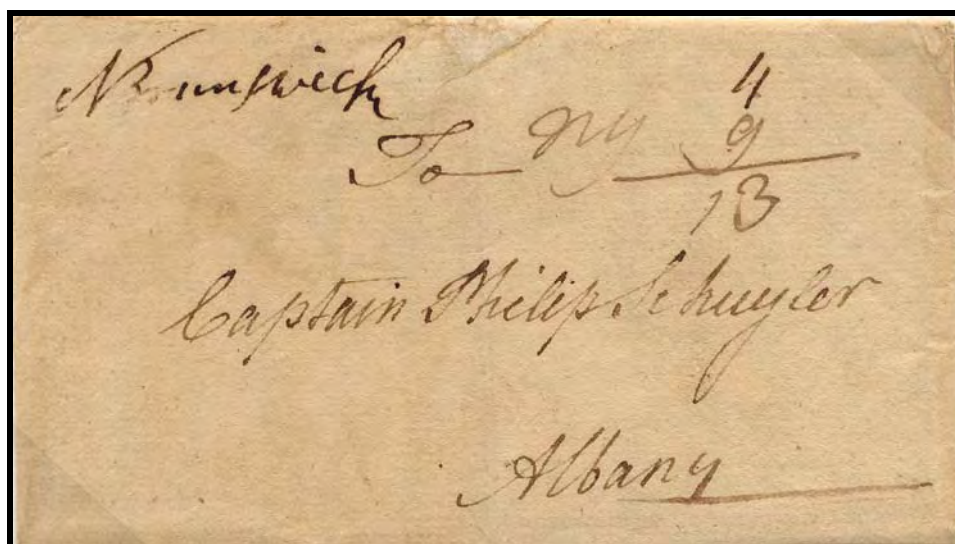 NBrunswick
4
To NY 9
13
Captain Philip Schuyler
Albany